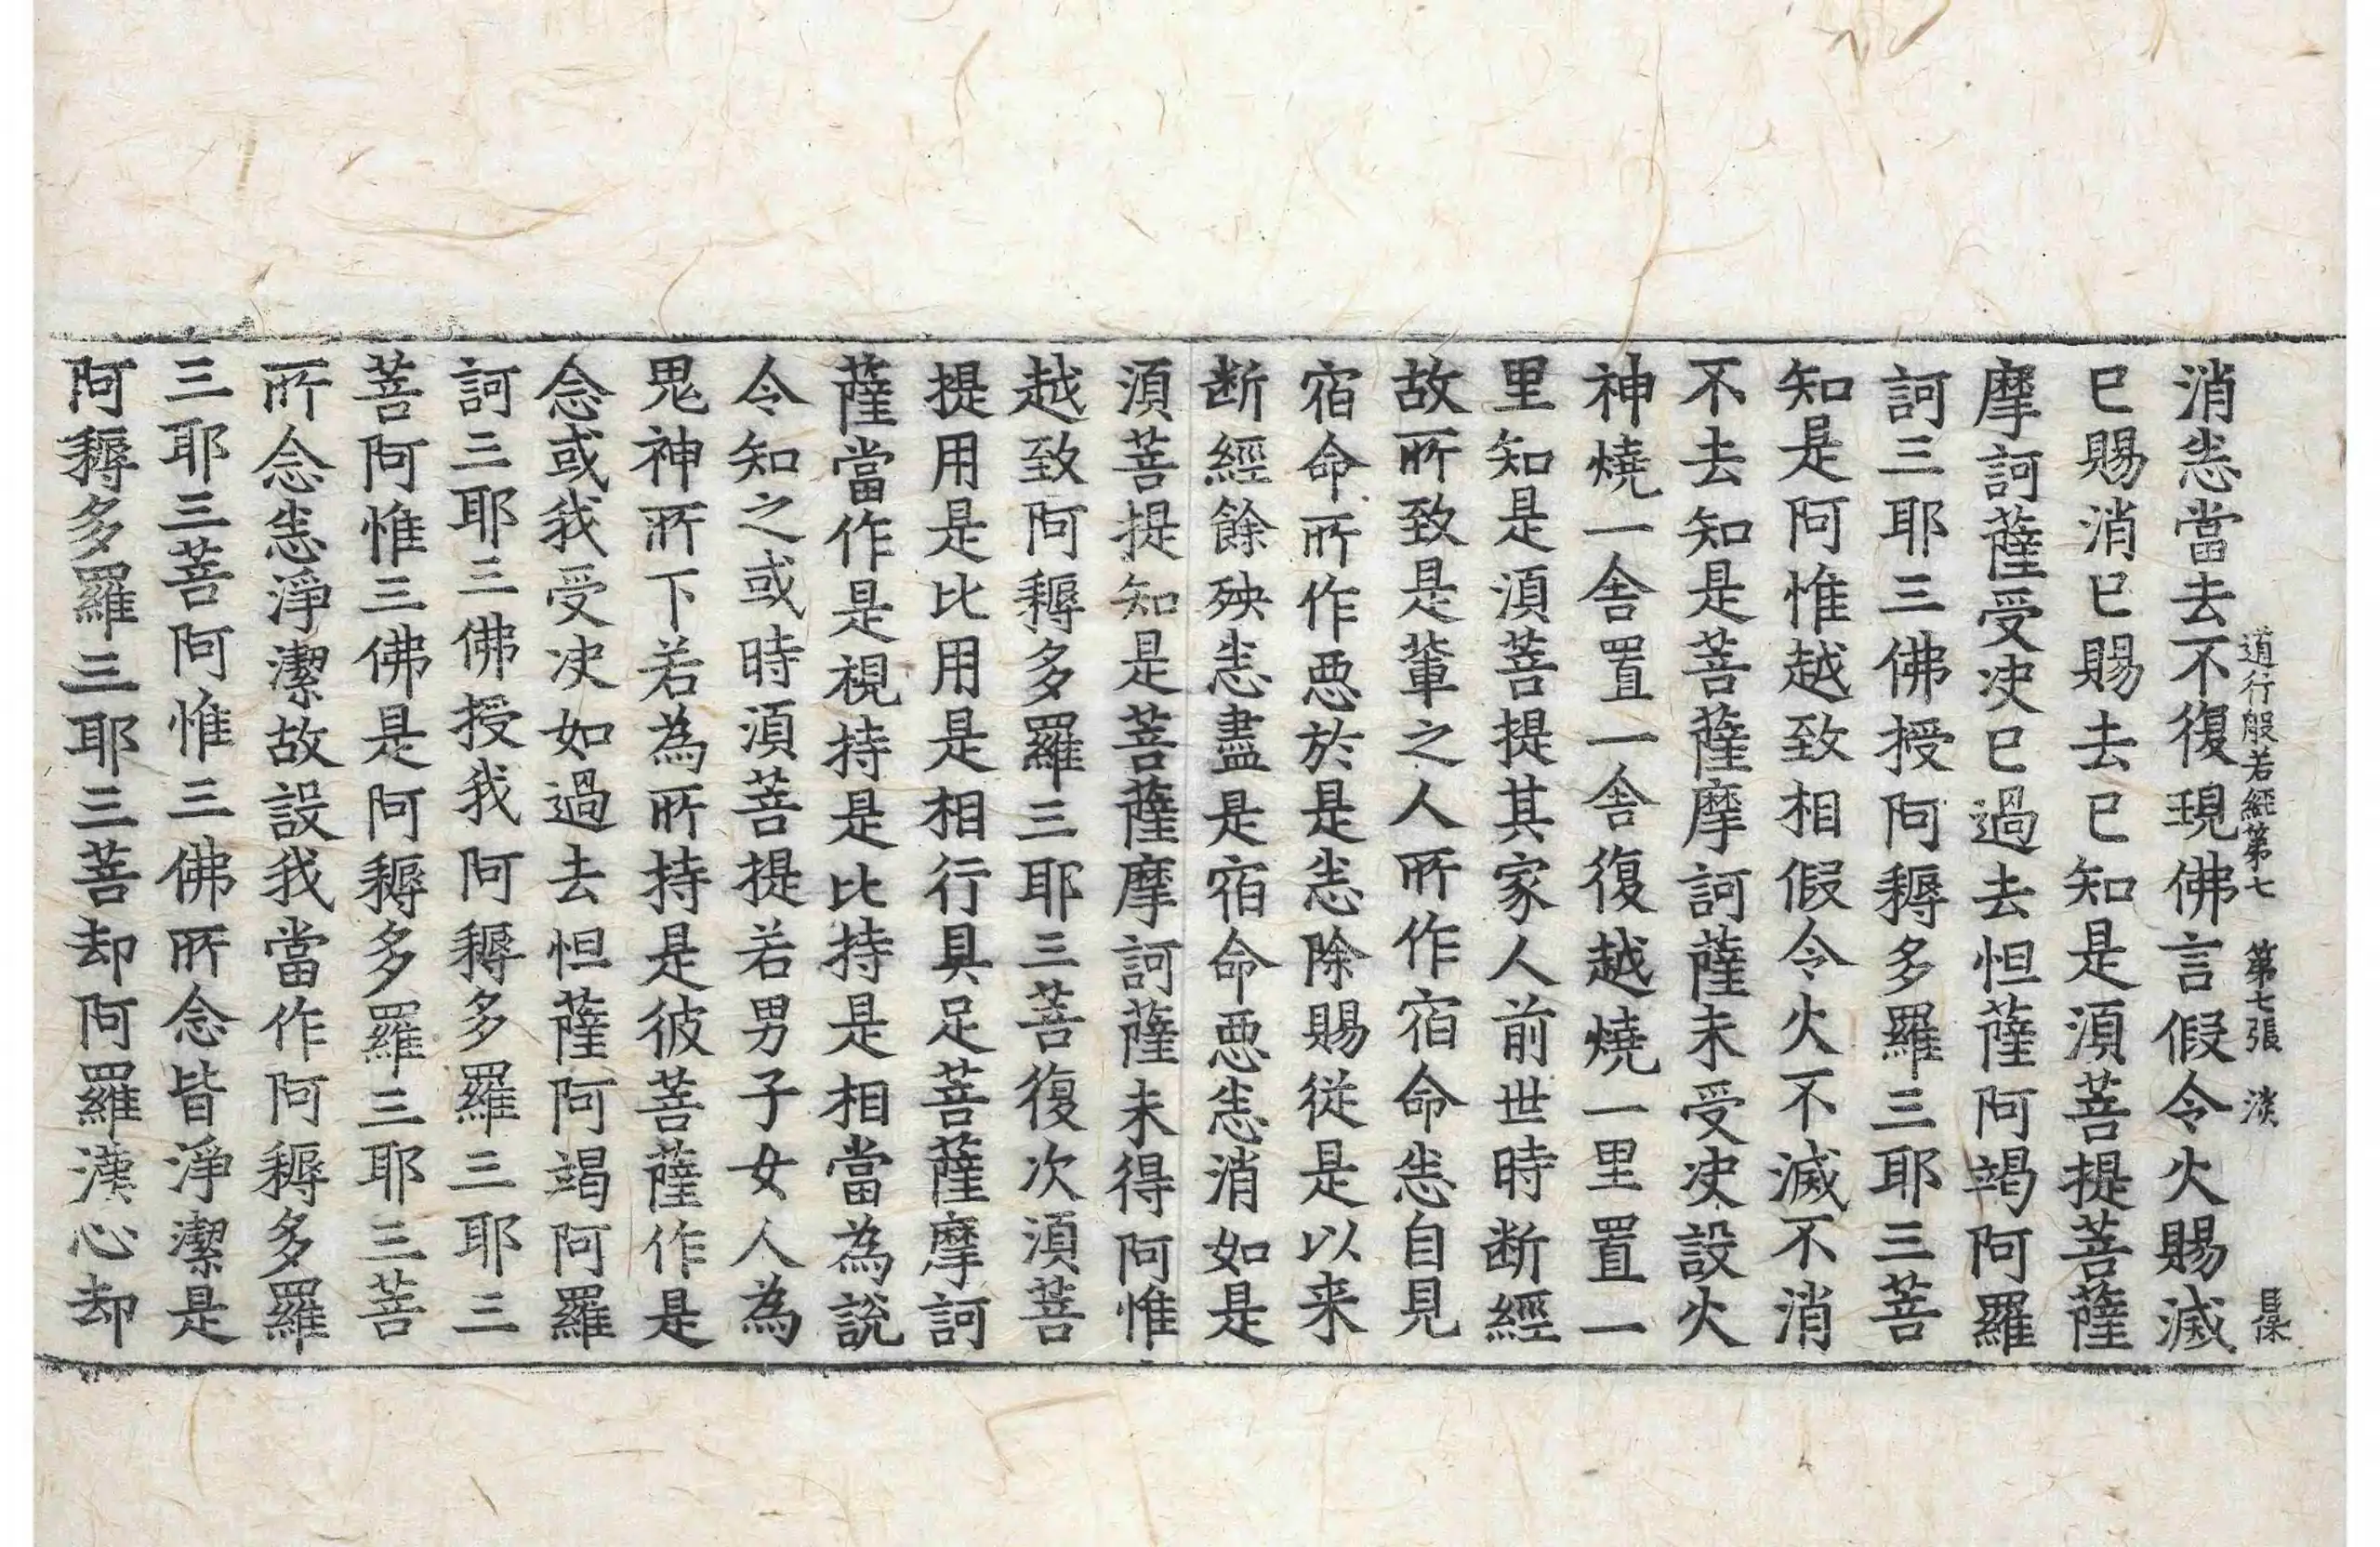 道行般若經第七　第七張　淡
消悉當去不復現佛言假令火賜滅
已賜消已賜去已知是湏菩提菩薩
摩訶薩受决已過去怛薩阿竭阿羅
訶三耶三佛授阿耨多羅三耶三菩
知是阿惟越致相假令火不滅不消
不去知是菩薩摩訶薩未受决設火
神燒一舍置一舍復越燒一里置一
里知是湏菩提其家人前世時断經
故所致是輩之人所作宿命悉自見
宿命所作惡於是悉除賜従是以来
断經餘殃悉盡是宿命惡悉消如是
湏菩提知是菩薩摩訶薩未得阿惟
越致阿耨多羅三耶三菩復次湏菩
提用是比用是相行具足菩薩摩訶
薩當作是視持是比持是相當為說
令知之或時湏菩提若男子女人為
鬼神所下若為所持是彼菩薩作是
念或我受决如過去怛薩阿竭阿羅
訶三耶三佛授我阿耨多羅三耶三
菩阿惟三佛是阿耨多羅三耶三菩
所念悉淨潔故設我當作阿耨多羅
三耶三菩阿惟三佛所念皆淨潔是
阿耨多羅三耶三菩却阿羅漢心却